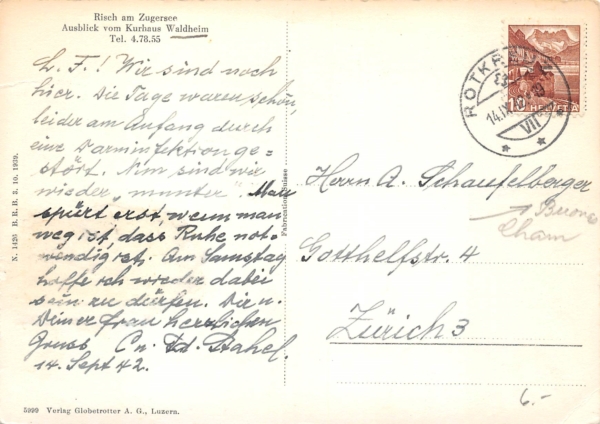 Risch am Zugersee
Ausblick vom Kurhaus Waldheim
Tel. 4.78.55
L. F.! Wir sind noch
hier. Die Tage waren schön,
leider am Anfang durch
eine Darminfektion ge=
stört. Nun sind wir
wieder „munter“. Man
spürt erst, wenn man
weg ist, dass Ruhe not-
wendig ist. Am Samstag
hoffe ich wieder dabei
sein zu dürfen. Dir u.
Deiner Frau herzlichen
Gruss
14. Sept 42.
N. 1420 B.R.B. 3. 10. 1939.
Fabrication Suisse
HELVETIA
ROTKREUZ
14.IX.42
VII
Herrn A. Schaufelberger
Cham
Gotthelfstr. 4
Zürich 3
6.-
5999 Verlag Globetrotter A. G., Luzern.